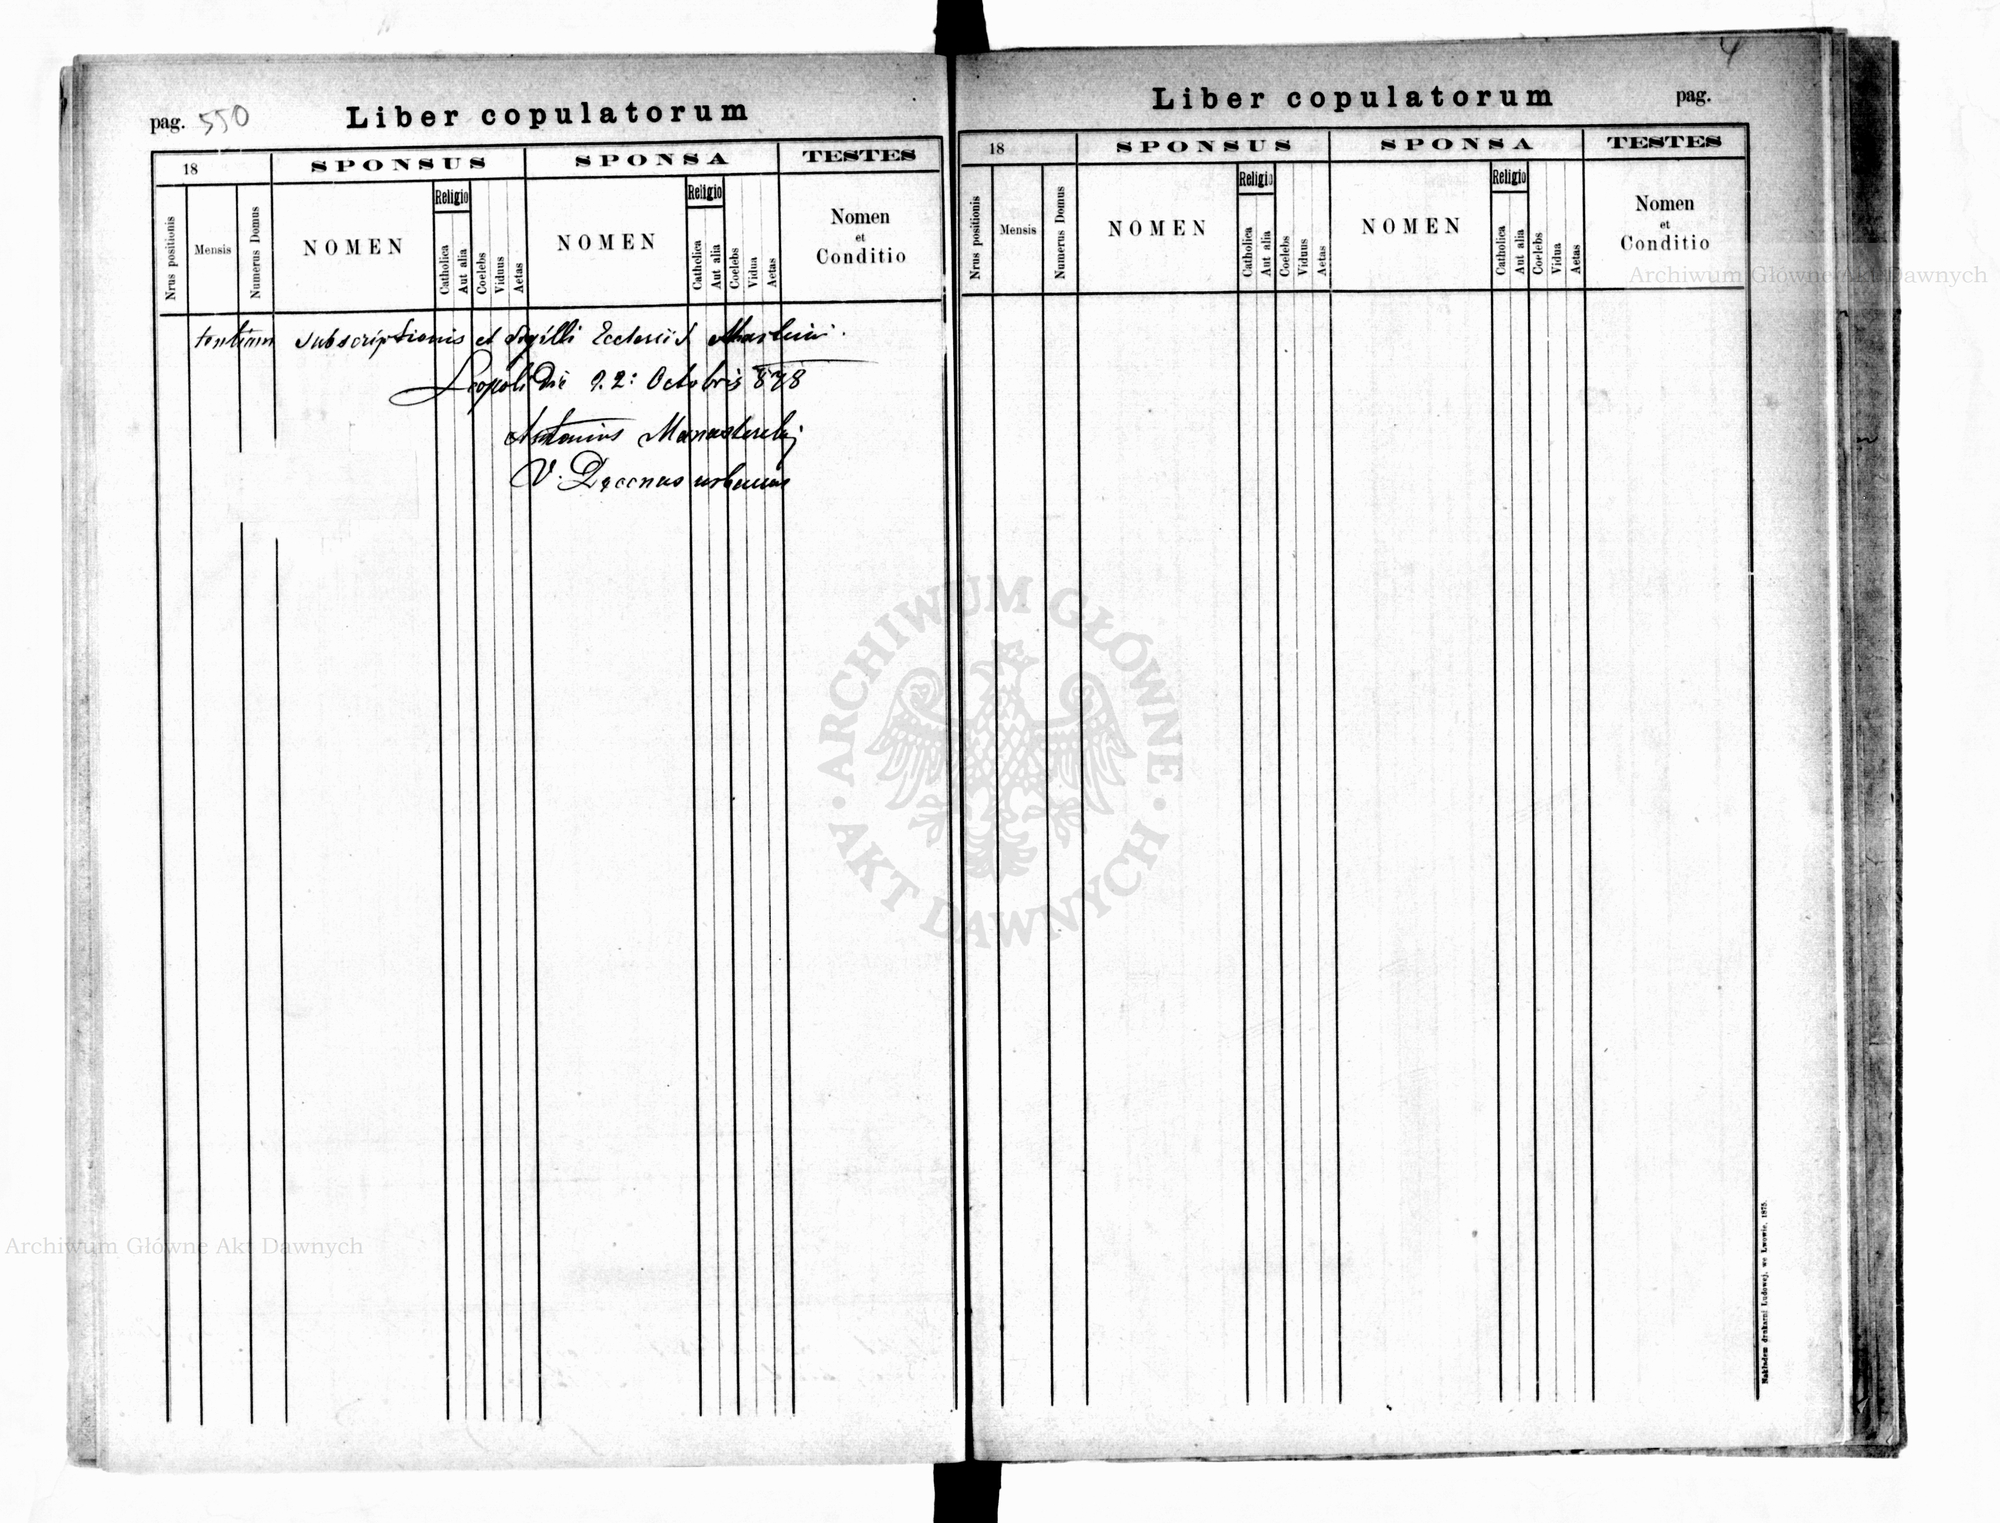 pag. 550
Liber copulatorum
18
SPONSUS
SPONSA
TESTES
Nrus positionis
Mensis
Numerus Domus
NOMEN
Religio
Catholica
Aut alia
Coelebs
Viduus
Aetas
NOMEN
Religio
Catholica
Aut alia
Coelebs
Vidua
Aetas
Nomen
et
Conditio
subscriptionis et Sigilli Martini
Leopoli Die 22: Octobris 878
Antonius Manasterskj
V: Decanus urbanus
4
Liber copulatorum
pag.
18
SPONSUS
SPONSA
TESTES
Nrus positionis
Mensis
Numerus Domus
NOMEN
Religio
Catholica
Aut alia
Coelebs
Viduus
Aetas
NOMEN
Religio
Catholica
Aut alia
Coelebs
Vidua
Aetas
Nomen
et
Conditio
Nakładem drukarni Ludowej, we Lwowie. 1875.
Archiwum Główne Akt Dawnych
ARCHIWUM GŁÓWNE
AKT DAWNYCH
Archiwum Główne Akt Dawnych